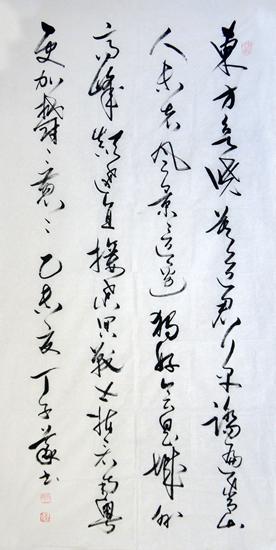 東方欲曉莫道君行早踏遍青山
人未老風景這邊獨好會昌城外
高峰顛連直接東溟戰士指看南粵
更加鬱〻葱〻乙未夏丁子書